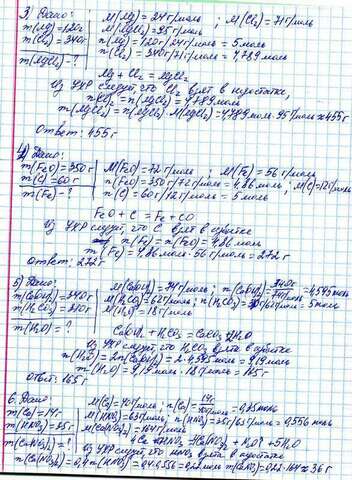 3) Дано:
m(Mg)=120г
m(Cl₂)=340г
m(MgCl₂)-?
M(Mg)=24г/моль; M(Cl₂)=71г/моль
M(MgCl₂)=95г/моль
n(Mg)=120г/24г/моль=5моль
n(Cl₂)=340г/71г/моль=4,789моль
Mg+Cl₂=MgCl₂
Из УХР следует, что Cl₂ взят в недостатке,
n(Cl₂)=n(MgCl₂)=4,789моль
m(MgCl₂)=n(MgCl₂)·M(MgCl₂)=4,789моль·95г/моль≈455г
Ответ: 455г
4) Дано:
m(FeO)=350г
m(C)=60г
m(Fe)=?
M(FeO)=72г/моль; M(Fe)=56г/моль
n(FeO)=350г/72г/моль=4,86моль; M(C)=12г/моль
n(C)=60г/12г/моль=5моль
FeO+C=Fe+CO
Из УХР следует, что C взят в избытке
n(Fe)=n(FeO)=4,86моль
m(Fe)=4,86моль·56г/моль=272г
Ответ: 272г
5) Дано:
m(Ca(OH)₂)=340г
m(H₂CO₃)=310г
m(H₂O)=?
M(Ca(OH)₂)=74г/моль; n(Ca(OH)₂)=340г/74г/моль=4,595моль
M(H₂CO₃)=62г/моль; n(H₂CO₃)=310г/62г/моль=5моль
M(H₂O)=18г/моль
Ca(OH)₂+H₂CO₃=CaCO₃+2H₂O
Из УХР следует, что H₂CO₃ взята в избытке
n(H₂O)=2n(Ca(OH)₂)=2·4,595моль=9,19моль
m(H₂O)=9,19моль·18г/моль=165г
Ответ: 165г
6. Дано:
m(Ca)=14г
m(HNO₃)=35г
m(Ca(NO₃)₂)=?
M(Ca)=40г/моль; n(Ca)=14г/40г/моль=0,35моль
M(HNO₃)=63г/моль; n(HNO₃)=35г/63г/моль=0,556моль
M(Ca(NO₃)₂)=164г/моль
Из УХР следует, что HNO₃ взята в недостатке